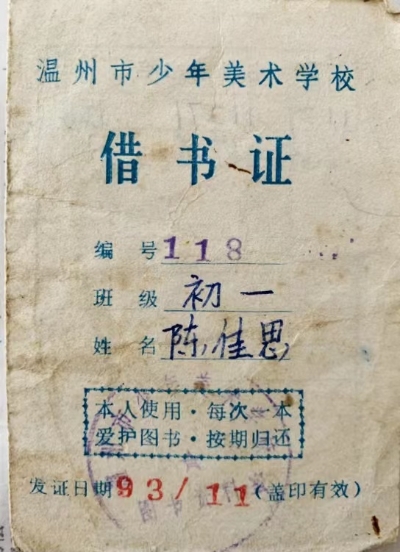 温州市少年美术学校
借书证
编号118
班级 初一
姓名 陈佳思
本人使用·每次一本
爱护图书·按期归还
发证日期93/11(盖印有效)